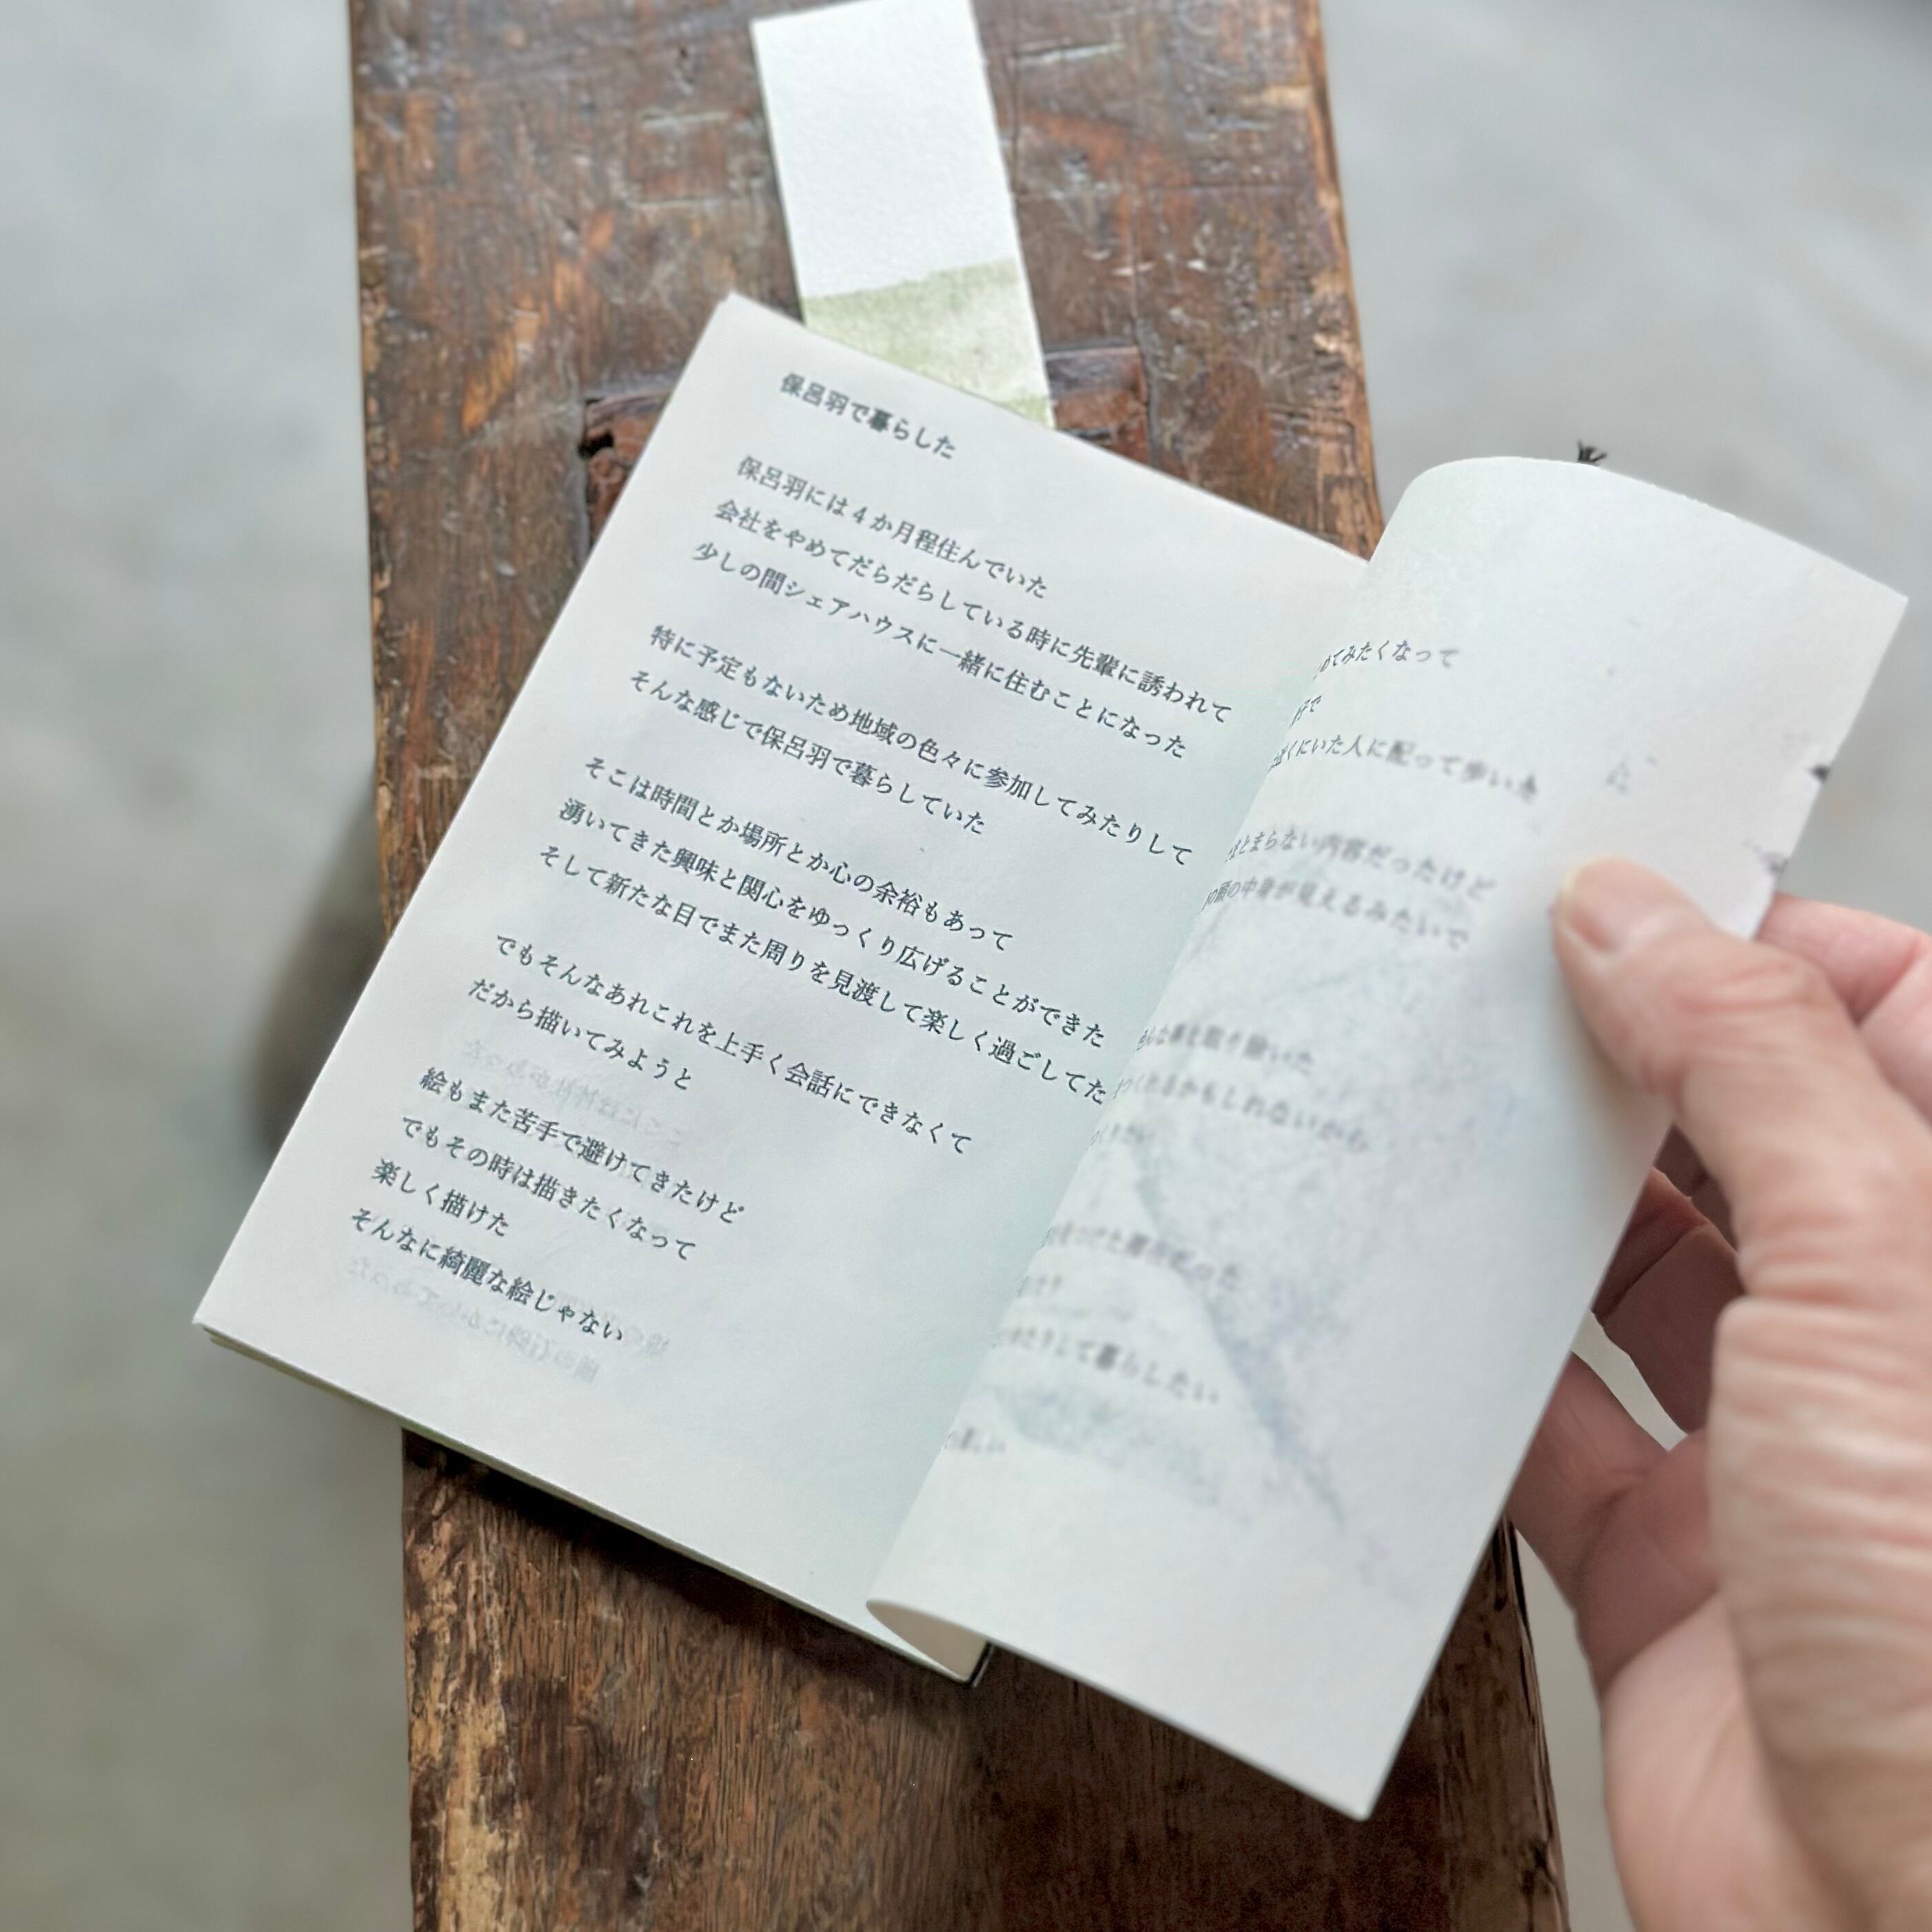 保呂羽で暮らした
保呂羽には4か月程住んでいた
会社をやめてだらだらしている時に先輩に誘われて
少しの間シェアハウスに一緒に住むことになった
特に予定もないため地域の色々に参加してみたりして
そんな感じで保呂羽で暮らしていた
そこは時間とか場所とか心の余裕もあって
湧いてきた興味と関心をゆっくり広げることができた
そして新たな目でまた周りを見渡して楽しく過ごしてた
でもそんなあれこれを上手く会話にできなくて
だから描いてみようと
絵もまた苦手で避けてきたけど
でもその時は描きたくなって
楽しく描けた
そんなに綺麗な絵じゃない
てみたくなって
で
くにいた人に配って歩いた
とまらない内容だったけど
の中身が見えるみたいで
な事を取り除いた
くれるかもしれないから
つけた場所だった
たりして暮らしたい